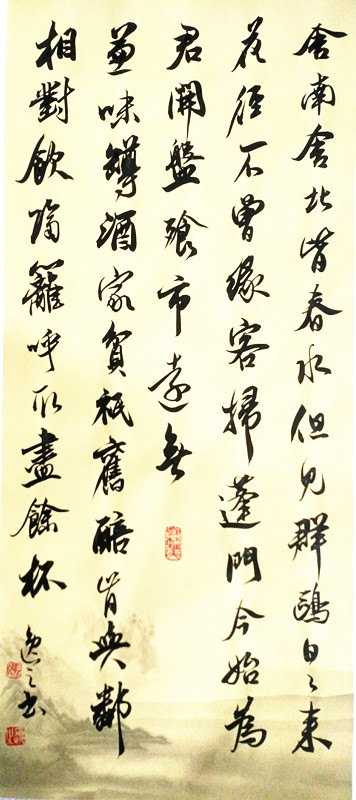 舍南舍北皆春水但見群鷗日々來
花徑不曾緣客掃蓬門今始為
君開盤飱市遠無
兼味罇酒家貧祇舊醅肯與鄰
相對飲隔籬呼取盡餘杯
逸之书